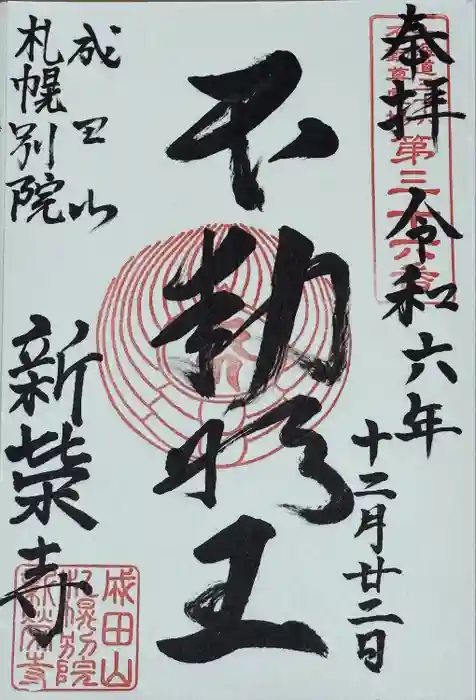 奉拝 令和六年
十二月廿二日
第三十六番
不動明王
成田山
札幌別院
新栄寺
成田山
札幌別院
新栄寺